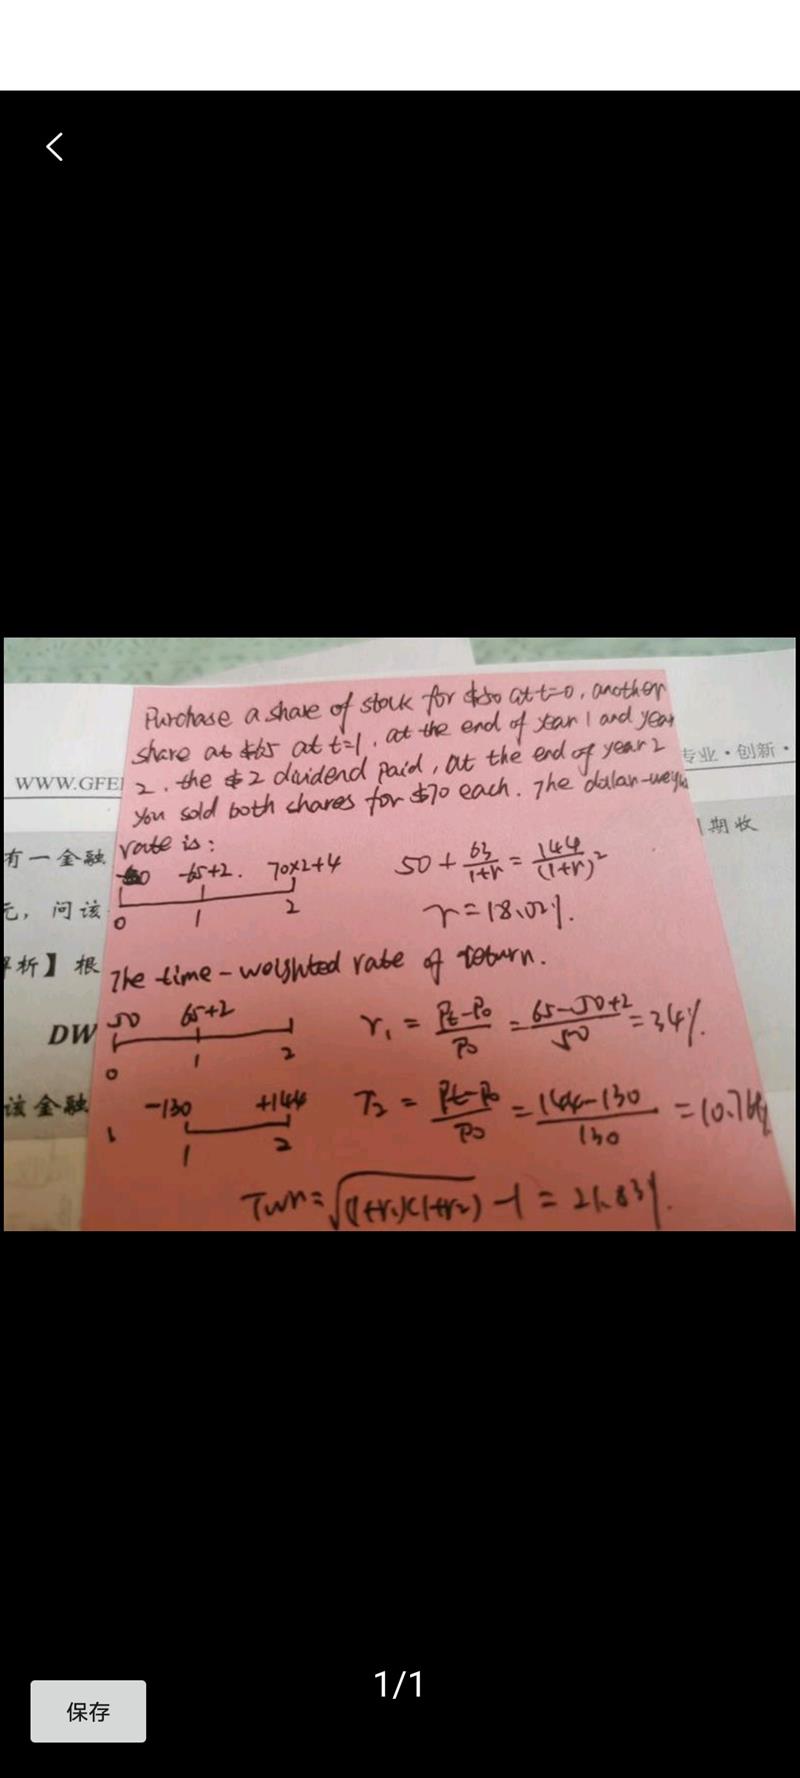 Purchase a share of stock for $50 at t=0, another
share at $65 at t=1. at the end of year 1 and year
2. the $2 dividend paid, at the end of year 2
you sold both shares for $70 each. The dollar-weigh
rate is:
-50 -65+2. 70×2+4
0 1 2
50 + 63/(1+r) = 144/(1+r)²
r=18.02%.
The time-weighted rate of return.
50 65+2
0 1 2
r₁ = (Pt-P0)/P0 = (65-50+2)/50 = 34%.
-130 +144
1 2
r₂ = (Pt-P0)/P0 = (144-130)/130 = 10.7
Twr = √(1+r₁)(1+r₂) -1 = 21.83%.
WWW.GFE
专业·创新·
有一金融
期收
元，问该
析】根
DW
该金融
1/1
保存